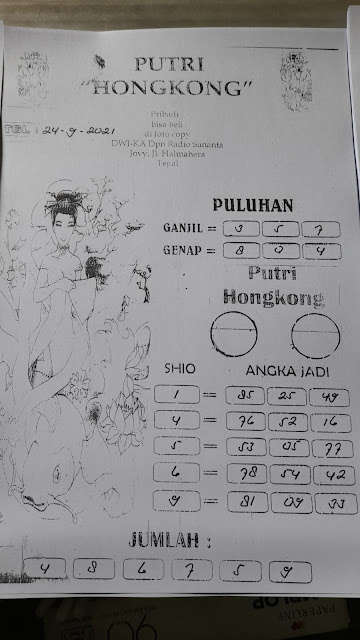 PUTRI
"HONGKONG"
Pribadi
bisa beli
di foto copy
DWI-KA Dpn Radio Sananta
Jovy, Jl. Halmahera
Tegal
TGL : 24-9-2021
PULUHAN
GANJIL = 3 5 7
GENAP = 8 0 4
Putri
Hongkong
SHIO ANGKA JADI
1 = 85 25 49
4 = 76 52 16
5 = 53 05 77
6 = 78 54 42
9 = 81 09 33
JUMLAH :
4 8 6 7 5 9